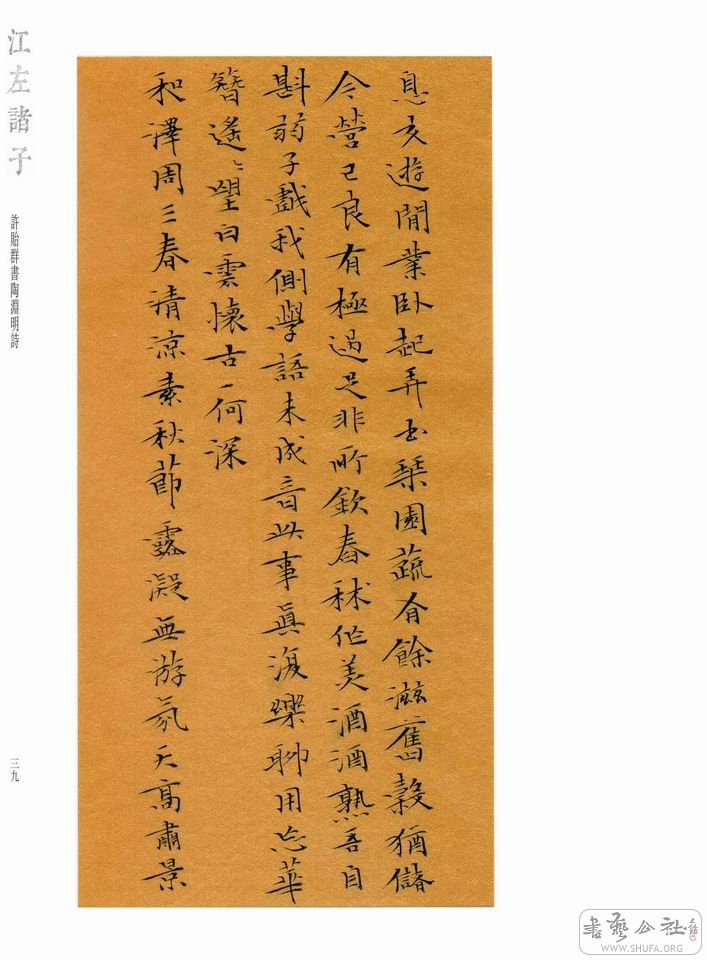 息交遊閒業臥起弄書琴園蔬有餘滋舊穀猶儲
今營己良有極過足非所欽舂秫作美酒酒熟吾自
斟弱子戲我側學語未成音此事真復樂聊用忘華
簪遙〻望白雲懷古一何深
和澤周三春清涼素秋節露凝無游氛天高肅景
江左諸子
許貽群書陶淵明詩
三九
書藝公社
WWW.SHUFA.ORG